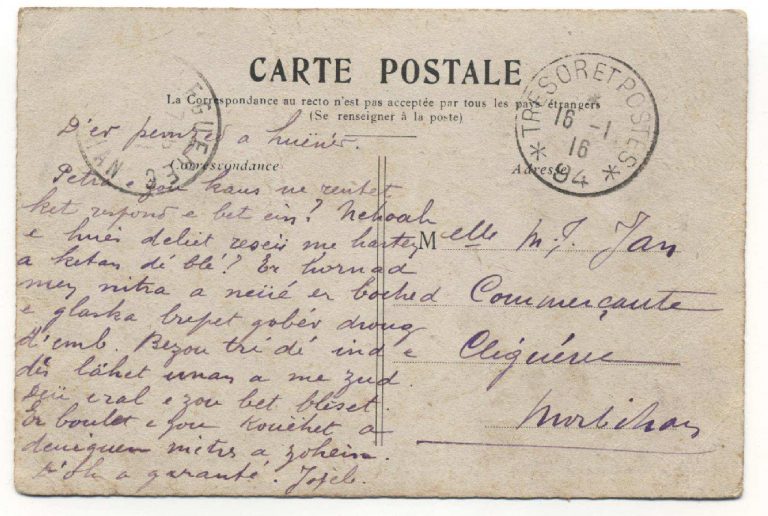 CARTE POSTALE
La Correspondance au recto n'est pas acceptée par tous les pays étrangers
(Se renseigner à la poste)
TRESOR ET POSTES
16 -1
16
94
Correspondance
Adresse
D'er a
Petra e zou kaus ne rentet
ket respond e bet ein? Nehoah
e hues deliet reseü me hartez
a ketan dé blé? Er hornad
men nitra a neüé er boched
e glaska berpet gobér droug
d'emb. Bezou tri dé ind e
dès lahet unan a me zud.
Deü eral e zou bet bleset.
Er boulet e zou kouéhet a
metrs a zohein.
a garanté. Jozeb.
Melle M. J. Jan
Commerçante
Cléguérec
Morbihan